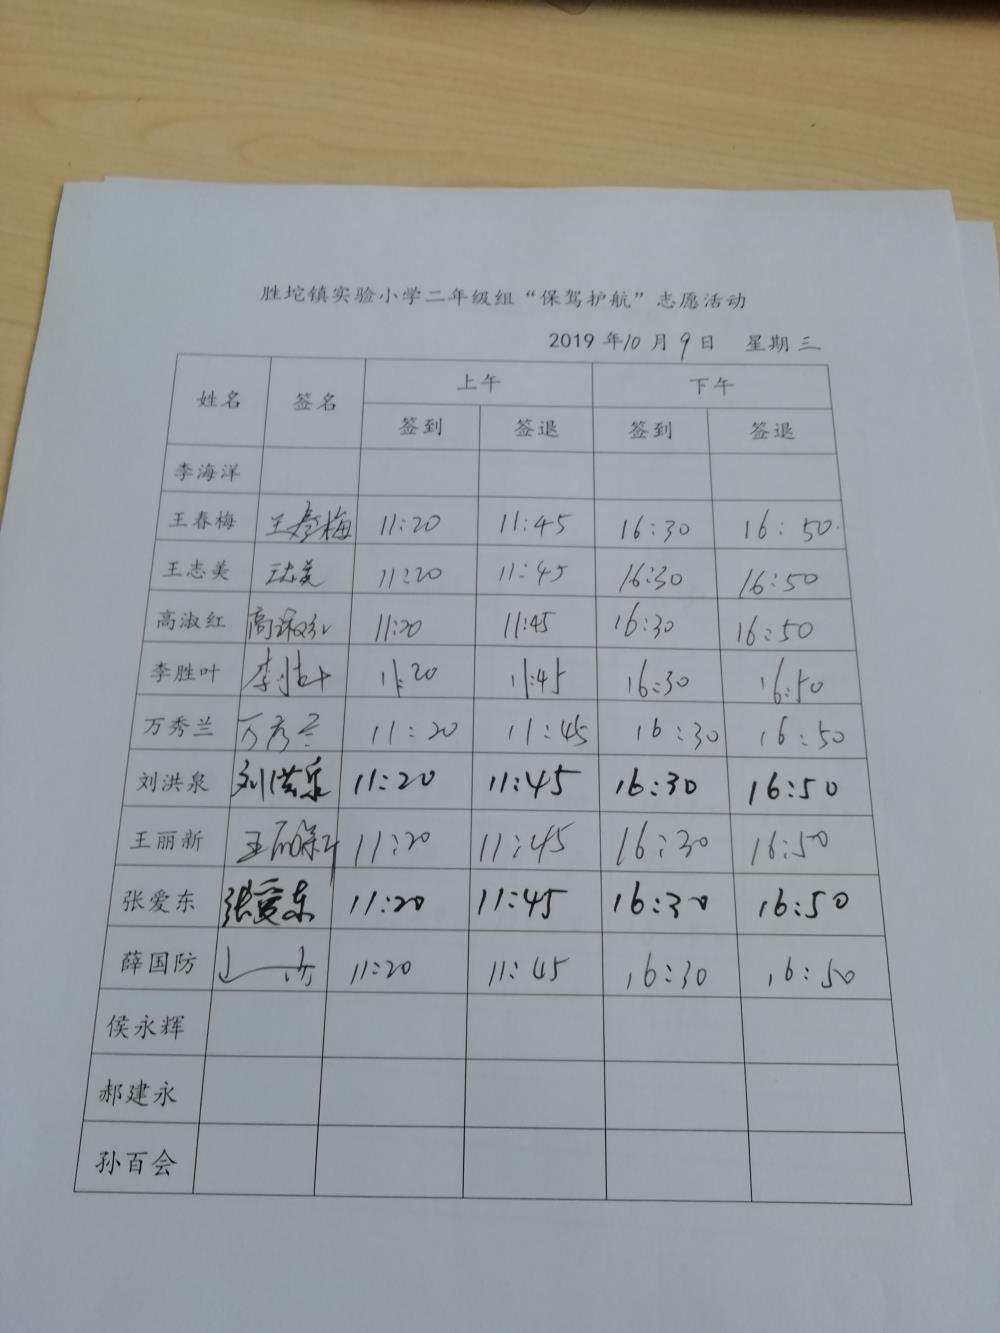 胜坨镇实验小学二年级组“保驾护航”志愿活动
2019 年10 月 9 日 星期 三
姓名 签名 上午 下午
签到 签退 签到 签退
李海洋
王春梅 王春梅 11:20 11:45 16:30 16:50
王志美 王志美 11:20 11:45 16:30 16:50
高淑红 高淑红 11:20 11:45 16:30 16:50
李胜叶 李胜叶 11:20 11:45 16:30 16:50
万秀兰 万秀兰 11:20 11:45 16:30 16:50
刘洪泉 刘洪泉 11:20 11:45 16:30 16:50
王丽新 王丽新 11:20 11:45 16:30 16:50
张爱东 张爱东 11:20 11:45 16:30 16:50
薛国防 11:20 11:45 16:30 16:50
侯永辉
郝建永
孙百会